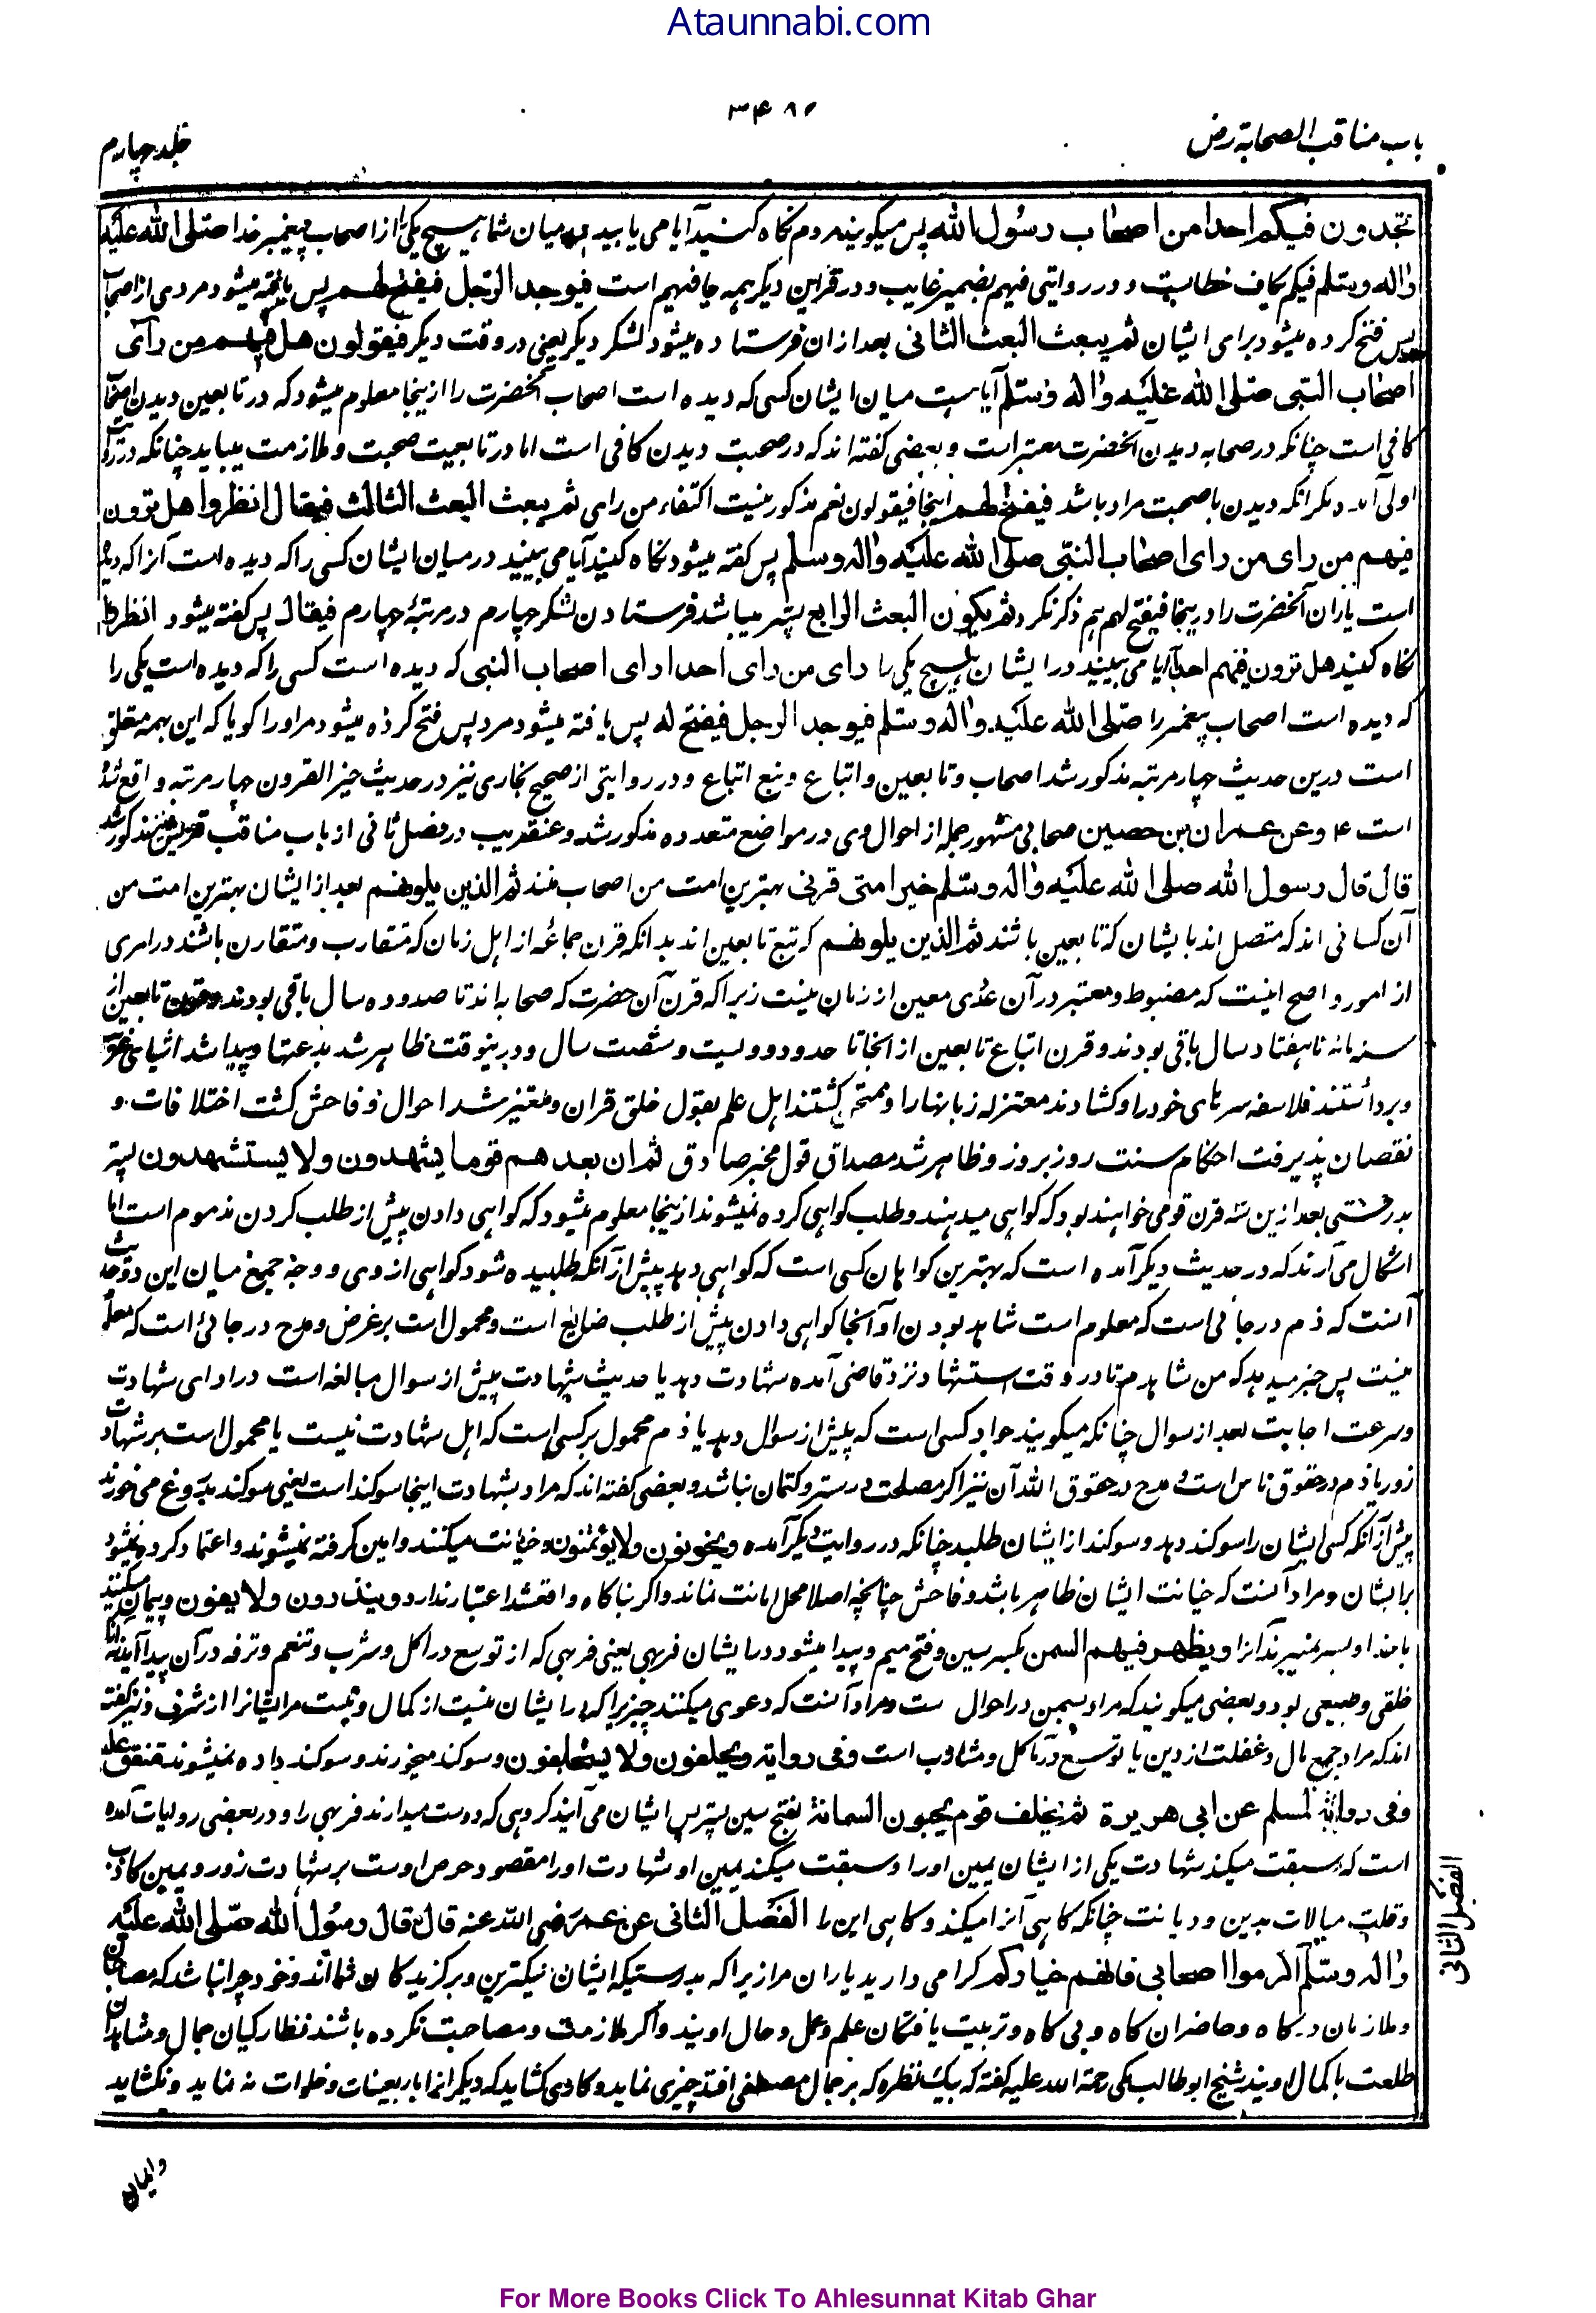 Ataunnabi.com
باب مناقب الصحابة رض
جلد چهارم
تجدون فيكم احدا من اصحاب رسول الله پس میگویند مردم نگاه کنید آیا می یابید میان شما هیچ یکی را از اصحاب پیغمبر خدا صلى الله عليه
واله وسلم فيكم بكاف خطاب ست و در روایتی فيهم بضمیر غایب و در قراین دیگر همه جا فیهم است فيوجد الرجل فيفتح لهم پس یافته میشود مردی از اصحاب
پس فتح کرده میشود برای ایشان ثم يبعث البعث الثانی بعد ازان فرستاده میشود لشکر دیگر یعنی در وقت دیگر فيقولون هل فيهم من رأى
اصحاب النبى صلى الله عليه واله وسلم آیا هست میان ایشان کسی که دیده است اصحاب آنحضرت را ازینجا معلوم میشود که در تابعین دیدن اصحاب
کافی است چنانکه در صحابه دیدن آنحضرت معتبر است و بعضی گفته اند که در صحبت دیدن کافی است اما در تابعیت صحبت و ملازمت میباید چنانکه در
اولی آمد مگر آنکه دیدن با صحبت مراد باشد فيفتح لهم اینجا فيقولون نعم مذکور نیست اکتفاء من رای ثم يبعث البعث الثالث فيقال انظروا هل ترون
فيهم من راى من راى اصحاب النبى صلى الله عليه واله وسلم پس گفته میشود نگاه کنید آیا می بینید در میان ایشان کسی را که دیده است آنرا که دیده
است یاران آنحضرت را درینجا فیفتح لهم هم ذکر نکرد ثم يكون البعث الرابع پستر میباشد فرستادن لشکر چهارم در مرتبهٔ چهارم فيقال پس گفته میشود انظروا
نگاه کنید هل ترون فيهم احدا آیا می بینید در ایشان هیچ یکی را راى من راى احدا راى اصحاب النبى که دیده است کسی را که دیده است یکی را
که دیده است اصحاب پیغمبر را صلى الله عليه واله وسلم فيوجد الرجل فيفتح له پس یافته میشود مرد پس فتح کرده میشود مر او را گویا که این همه متعلق
است درین حدیث چهار مرتبه مذکور شد اصحاب و تابعین و اتباع و تبع اتباع و در روایتی از صحیح بخاری نیز در حدیث خیر القرون چهار مرتبه واقع شده
است ۴ وعن عمران بن حصين صحابی مشهور جمله از احوال وی در مواضع متعدده مذکور شد و عنقریب در فصل ثانی از باب مناقب قریش نیز مذکور شد
قال قال رسول الله صلى الله عليه واله وسلم خير امتى قرنى بهترین امت من اصحاب منند ثم الذين يلونهم بعد از ایشان بهترین امت من
آن کسانی اند که متصل اند بایشان که تابعین باشند ثم الذين يلونهم که تبع تابعین اند بدانکه قرن جماعه از اهل زمان که متقارب و متقارن باشند در امری
از امور و اصح اینست که مضبوط و معتبر در آن عددی معین از زمان نیست زیرا که قرن آن حضرت که صحابه اند تا صد و ده سال باقی بودند و قرن تابعین از
سنه مائه تا هفتاد سال باقی بودند و قرن اتباع تابعین از آنجا تا حدود دویست و شصت سال و درینوقت ظاهر شد بدعتها و پیدا شد اشیای
وبرداشتند فلاسفه سرهای خود را و کشادند معتزله زبانها را و ممتحن گشتند اهل علم بقول خلق قران و متغیر شد احوال و فاحش گشت اختلافات و
نقصان پذیرفت احکام سنت روز بروز و ظاهر شد مصداق قول مخبر صادق ثم ان بعدهم قوما يشهدون ولا يستشهدون پستر
بدرستی بعد ازین سه قرن قومی خواهند بود که گواهی میدهند و طلب گواهی کرده نمیشوند ازینجا معلوم میشود که گواهی دادن پیش از طلب کردن مذموم است اما
اشکال می آرند که در حدیث دیگر آمده است که بهترین گواهان کسی است که گواهی دهد پیش از آنکه طلبیده شود گواهی از وی و وجه جمع میان این دو حدیث
آنست که ذم در جائی است که معلوم است شاهد بودن او آنجا گواهی دادن پیش از طلب ضایع است و محمول است بر غرض و مدح در جائی است که معلوم
نیست پس خبر میدهد که من شاهدم تا در وقت استشهاد نزد قاضی آمده شهادت دهد یا حدیث شهادت پیش از سوال مبالغه است در ادای شهادت
وسرعت اجابت بعد از سوال چنانکه میگویند جواد کسی است که پیش از سوال دهد یا ذم محمول بر کسی است که اهل شهادت نیست یا محمول است بر شهادت
زور یا ذم در حقوق ناس است و مدح در حقوق الله آن نیز اگر مصلحت در ستر و کتمان نباشد و بعضی گفته اند که مراد بشهادت اینجا سوگند است یعنی سوگند بدروغ می خورند
پیش از آنکه کسی ایشان را سوگند دهد و سوگند از ایشان طلبد چنانکه در روایت دیگر آمده ويخونون ولا يؤتمنون و خیانت میکنند و امین گرفته نمیشوند و اعتماد کرده نمیشود
برایشان و مراد آنست که خیانت ایشان ظاهر باشد و فاحش چنانچه اصلا محل امانت نماند و اگر بناگاه واقع شد اعتبار ندارد وينذرون ولا يفون و پیمان میکنند
با خدا و بسر نمیبرند آنرا ويظهر فيهم السمن بکسر سین و فتح میم و پیدا میشود در ایشان فربهی یعنی فربهی که از توسع در اکل و شرب و تنعم و ترفه در آن پیدا آید نه آنکه
خلقی و طبیعی بود و بعضی میگویند که مراد بسمن در احوال ست و مراد آنست که دعوی میکنند چیزیرا که در ایشان نیست از کمال و نیست مر ایشانرا از شرف و نیز گفته
اند که مراد جمع مال و غفلت از دین یا توسع در مآکل و مشارب است وفى رواية ويحلفون ولا يستحلفون و سوگند میخورند و سوگند داده نمیشوند متفق عليه
وفى رواية لمسلم عن ابى هريرة ثم يخلف قوم يحبون السمانة بفتح سین پستر پس ایشان می آیند گروهی که دوست میدارند فربهی را و در بعضی روایات آمده
است که سبقت میکند شهادت یکی از ایشان یمین او را و سبقت میکند یمین او شهادت او را مقصود حرص اوست بر شهادت زور و یمین کاذب
وقلت مبالات بدین و دیانت چنانکه گاهی آنرا میکند و گاهی این را الفصل الثانى عن عمر رضى الله عنه قال قال رسول الله صلى الله عليه
واله وسلم اكرموا اصحابى فانهم خياركم گرامی دارید یاران مرا زیرا که بدرستیکه ایشان نیکترین و برگزیدگان شمااند و خود چرا نباشد که مصاحبان
وملازمان درگاه و حاضران گاه و بی گاه و تربیت یافتگان علم و عمل و حال اویند و اگر ملازمت و مصاحبت نکرده باشند نظارگیان جمال و مشاهدان
طلعت با کمال اویند شیخ ابو طالب مکی رحمة الله علیه گفته که بیک نظره که بر جمال مصطفی افتد چیزی نماید و کاری کشاید که دیگرانرا باربعینات و خلوات نه نماید و نکشاید
الفصل الثانى
وایمان
For More Books Click To Ahlesunnat Kitab Ghar